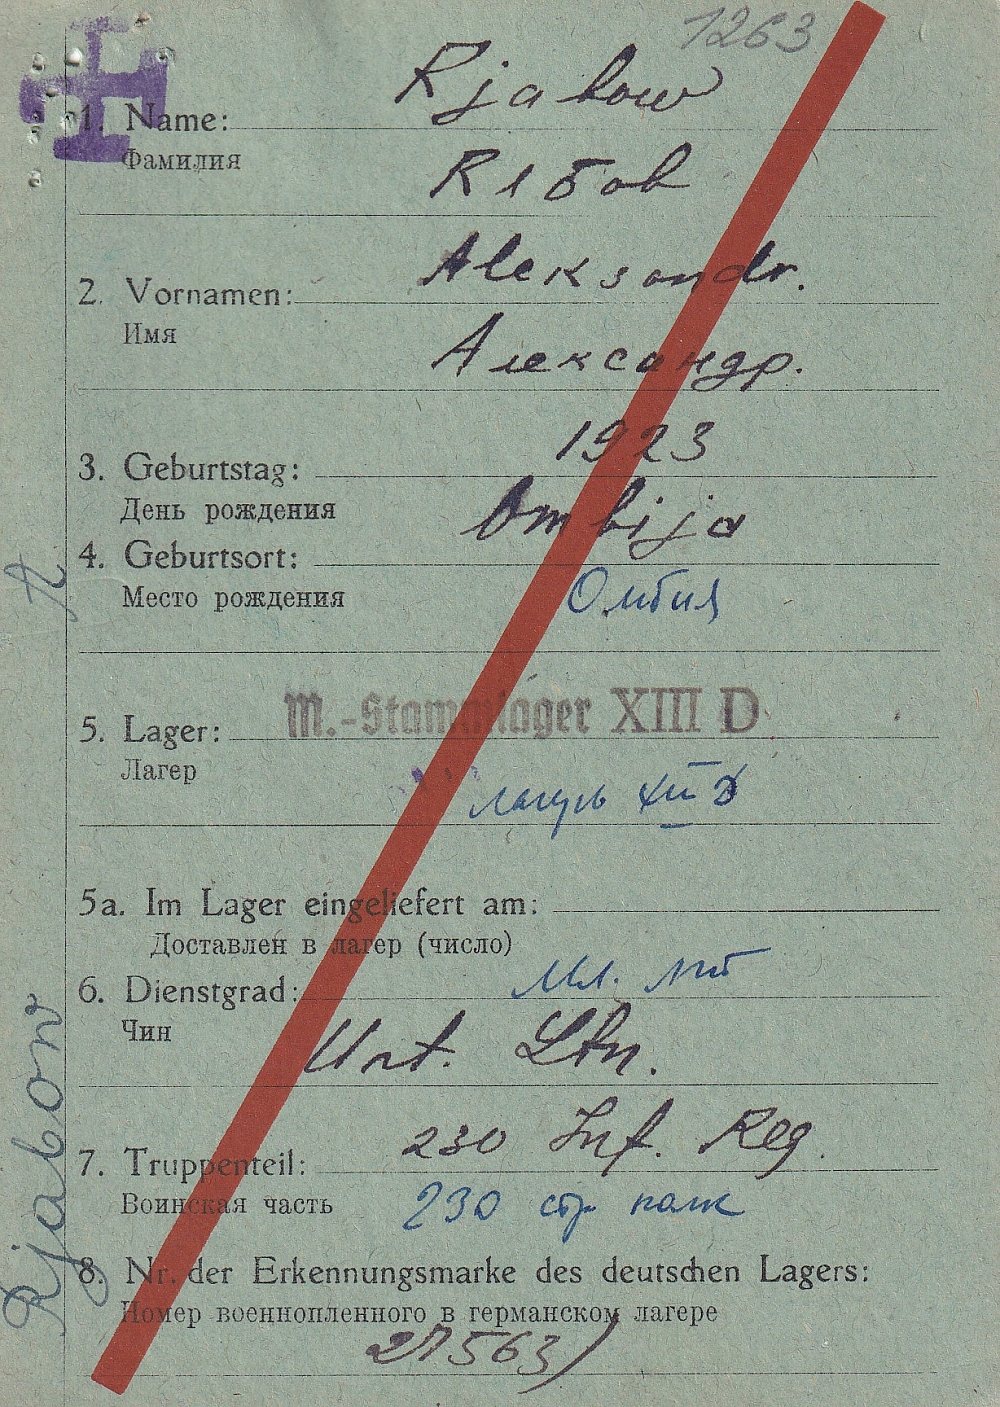 1263
1. Name: Rjabow
Фамилия
Rябов
2. Vornamen: Aleksandr.
Имя
Александр.
3. Geburtstag: 1923
День рождения
Ombija
4. Geburtsort:
Место рождения Омбия
5. Lager: M.-Stammlager XIII D
Лагер
лагерь XIII D
5a. Im Lager eingeliefert am:
Доставлен в лагер (число)
6. Dienstgrad: Мл. лт
Чин
Unt. Ltn.
7. Truppenteil: 230 Inf. Reg.
Воинская часть 230 стр полк
8. Nr. der Erkennungsmarke des deutschen Lagers:
Номер военнопленного в германском лагере
27563)
Rjabow A